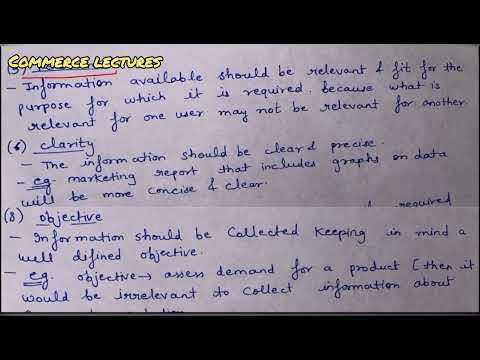 COMMERCE LECTURES
(5)
- Information available should be relevant & fit for the
purpose for which it is required. because what is
relevant for one user may not be relevant for another
(6) clarity
- The information should be clear & precise.
- eg. marketing report that includes graphs on data
will be more concise & clear.
required
(8) objective
- Information should be Collected Keeping in mind a
well difined objective.
- eg. objective → assess demand for a product [then it
would be irrelevant to collect information about